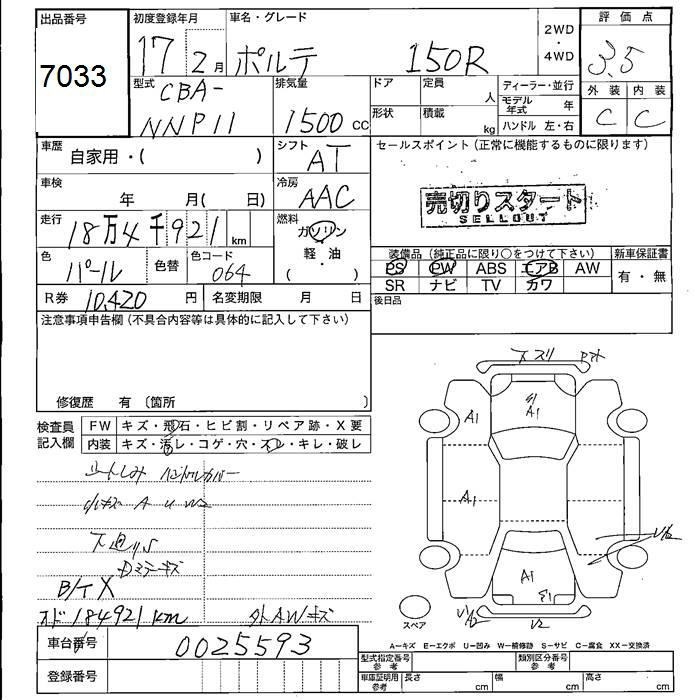 出品番号
7033
初度登録年月
17 2月
車名・グレード
ポルテ 150R
2WD
・
4WD
評価点
3.5
外装 内装
C C
型式
CBA-
NNP11
排気量
1500 cc
ドア
定員 人
形状
積載 kg
ディーラー・並行
モデル年式 年
ハンドル 左・右
車歴
自家用・( )
シフト
AT
セールスポイント(正常に機能するものに限ります)
売切りスタート
SELLOUT
車検
年 月( 日)
冷房
AAC
走行
18万4千921 km
燃料
ガソリン
軽・油
( )
色
パール
色替
色コード
064
装備品(純正品に限り○をつけて下さい)
PS PW ABS エアB AW
SR ナビ TV カワ
新車保証書
有・無
R券 10,420 円
名変期限 月 日
後日品
注意事項申告欄(不具合内容等は具体的に記入して下さい)
修復歴 有 〔箇所 〕
検査員記入欄
FW キズ・飛石・ヒビ割・リペア跡・X要
内装 キズ・汚レ・コゲ・穴・スレ・キレ・破レ
シートしみ ハンドルカバー
小キズ A U W2
下廻りS
Dミラーキズ
B/T X
オド 184921km
外AWキズ
下スリ
A1
A1
A1
A1
V2
スペア
A=キズ E=エクボ U=凹み W=補修跡 S=サビ C=腐食 XX=交換済
車台番号
0025593
登録番号
型式指定番号 参考
類別区分番号 参考
車庫証明用 参考
長さ cm
幅 cm
高さ cm